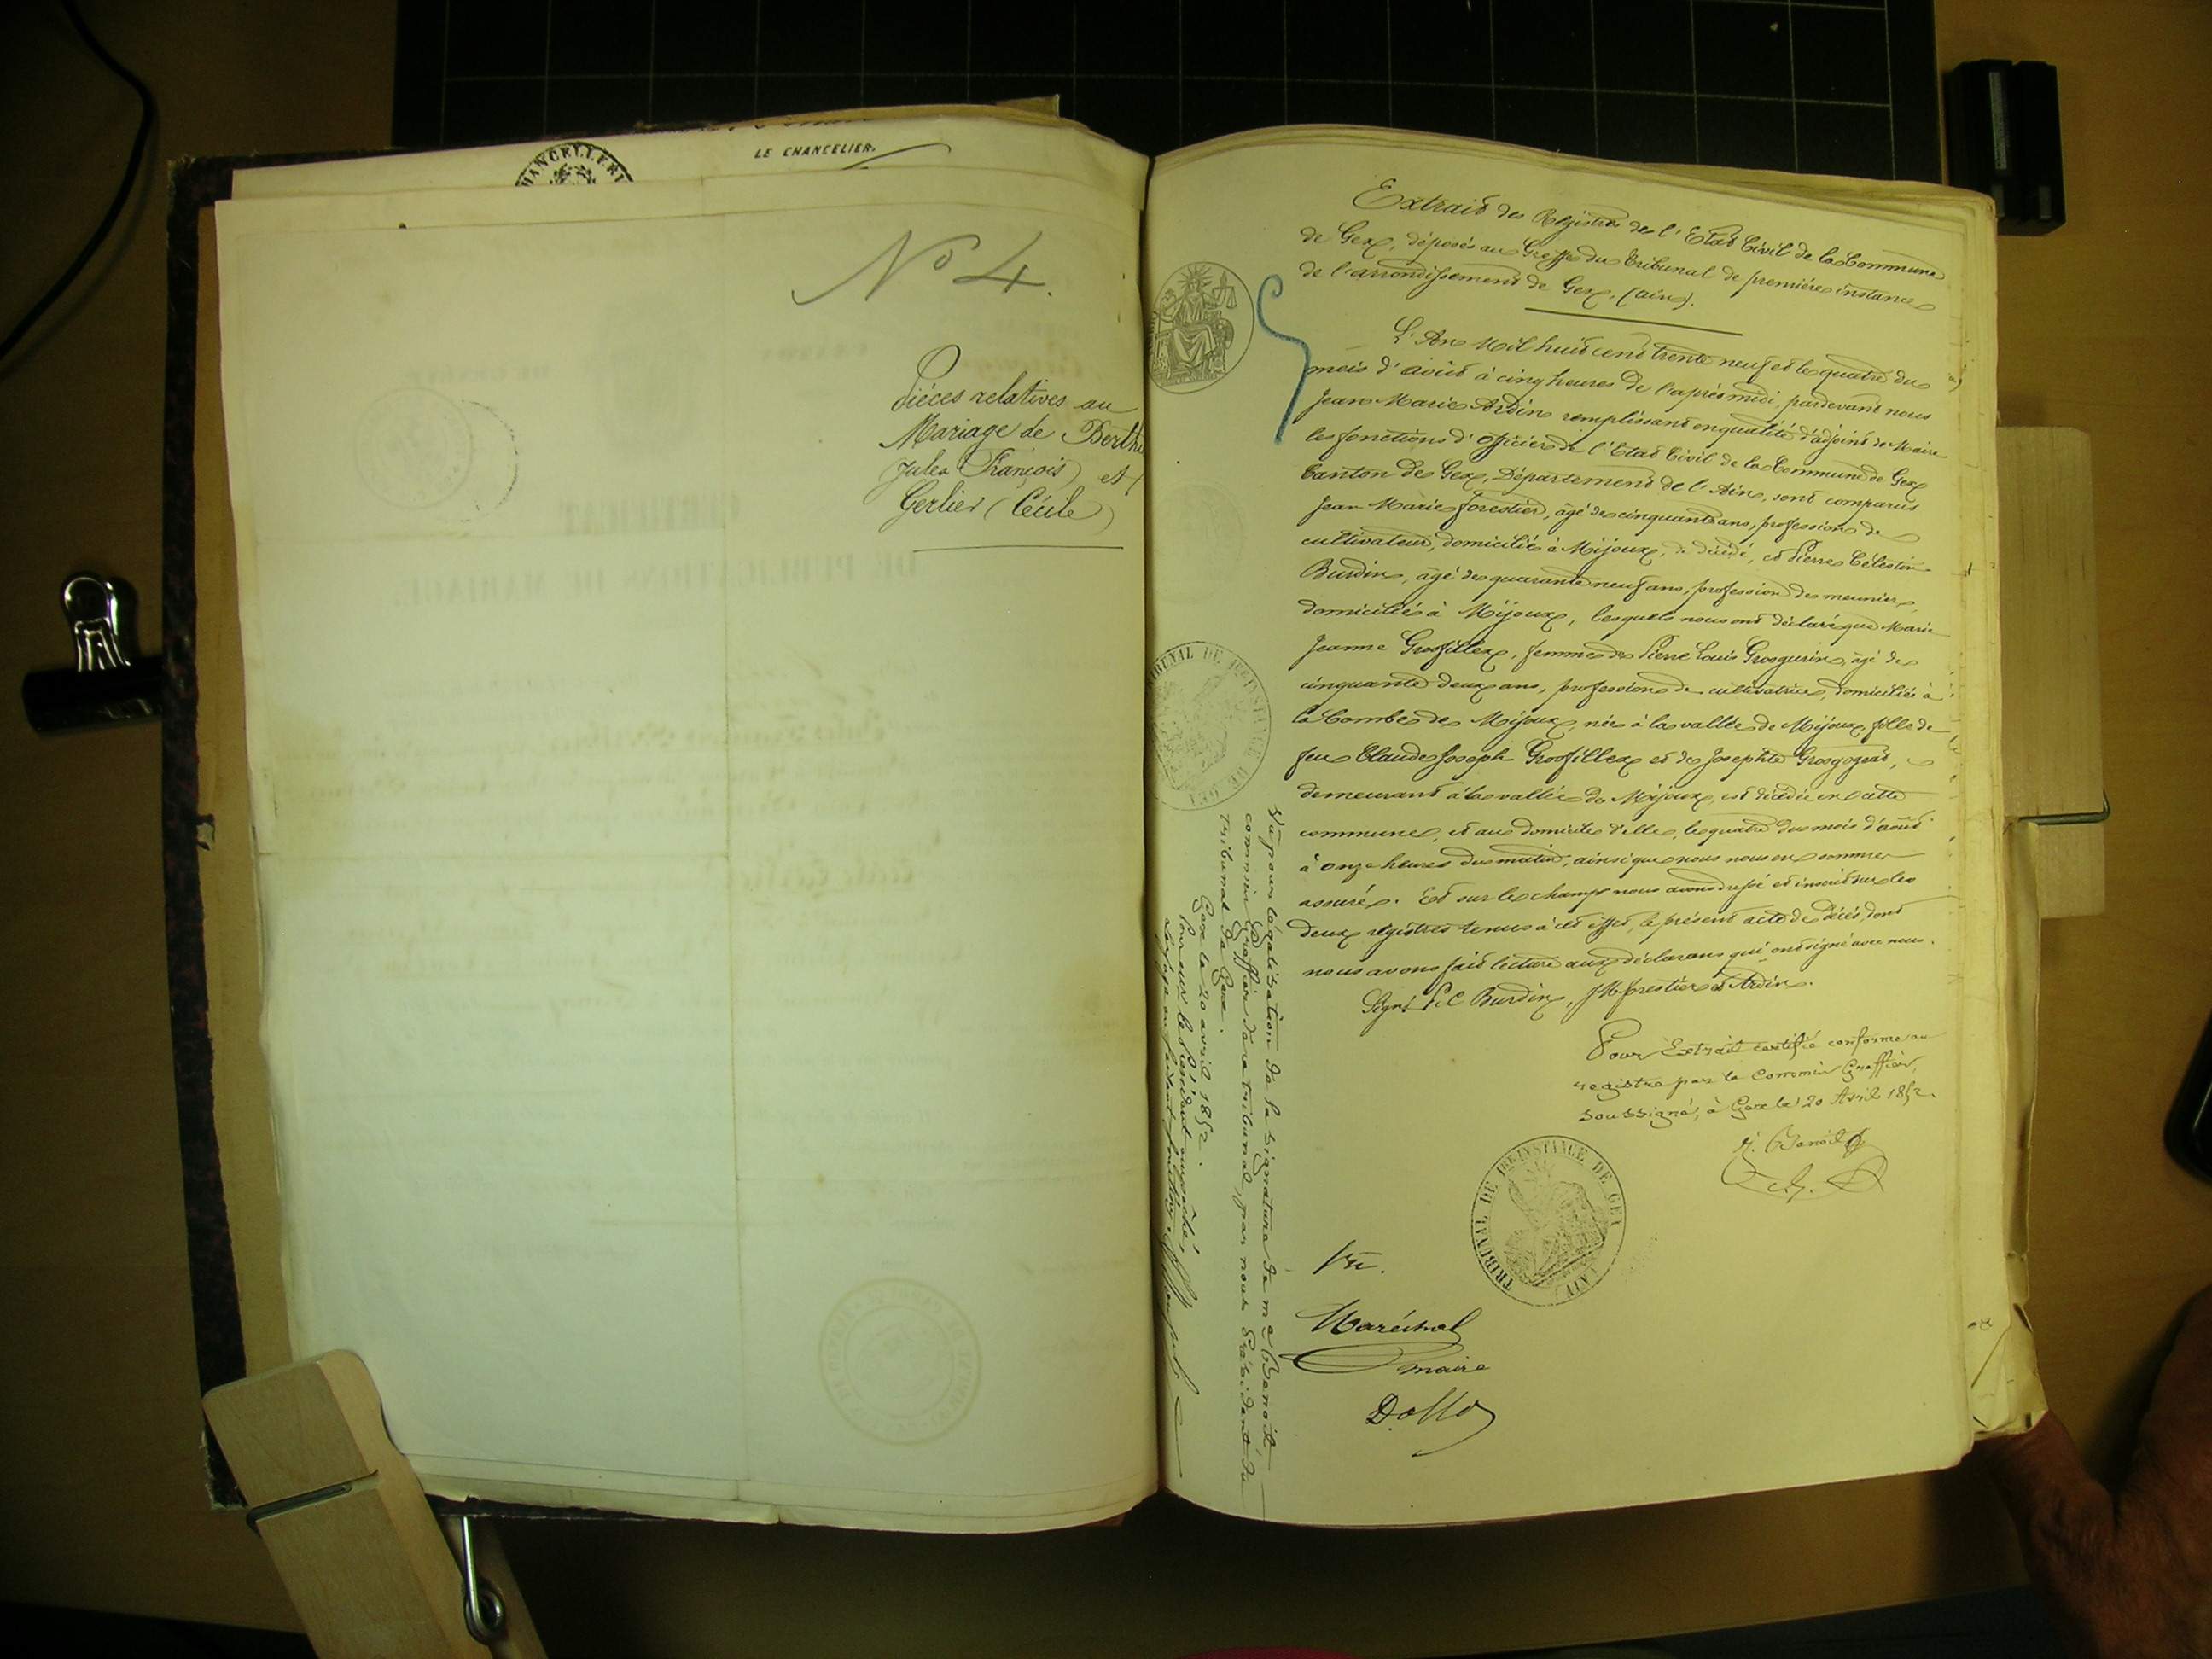 LE CHANCELIER.
CHANCELLERY
No 4.
Pièces relatives au
Mariage de Berth
(Jules François) et
Gerlier (Cécile)
Extrait des Registres de l'Etat Civil de la Commune
de Gex, déposés au Greffe du Tribunal de première instance
de l'arrondissement de Gex. (ain).
L'An Mil huit cent trente neuf et le quatre du
mois d'août à cinq heures de l'après midi, pardevant nous
Jean Marie Ardin remplissant en qualité d'adjoint de Maire
les fonctions d'Officier de l'Etat Civil de la Commune de Gex
Canton de Gex, Département de l'Ain, sont comparus
Jean Marie forestier, âgé de cinquante ans, profession de
cultivateur, domicilié à Mijoux, et Pierre Célestin
Burdin, âgé de quarante neuf ans, profession de meunier,
domicilié à Mijoux, lesquels nous ont déclaré que Marie
Jeanne Grosfillex, femme de Pierre Louis Grosgurin, âgé de
cinquante deux ans, profession de cultivatrice, domiciliée à
la Combe de Mijoux, née à la vallée de Mijoux, fille de
feu Claude Joseph Grosfillex et de Josephte Grosgogeat,
demeurant à la vallée de Mijoux, est décédée en cette
commune, et au domicile d'elle, le quatre du mois d'août
à onze heures du matin, ainsi que nous nous en sommes
assuré. Et sur le champ nous avons dressé et inscrit sur les
deux régistres tenus à cet effet, le présent acte de décès, dont
nous avons fait lecture aux déclarans qui ont signé avec nous.
Signé P. C Burdin, JM forestier et Ardin.
Pour Extrait certifié conforme au
registre par le Commis Greffier,
soussigné, à Gex le 20 Avril 1852.
Benoit
TRIBUNAL DE 1RE INSTANCE DE GEX
(AIN)
Vu.
Maréchal
maire
TRIBUNAL DE 1RE INSTANCE DE GEX
Vu pour légalisation de la signature de me Benoit
commis Greffier de ce tribunal, par nous Président du
Tribunal de Gex.
Gex le 20 avril 1852.
Pour Mr le Président empêché,